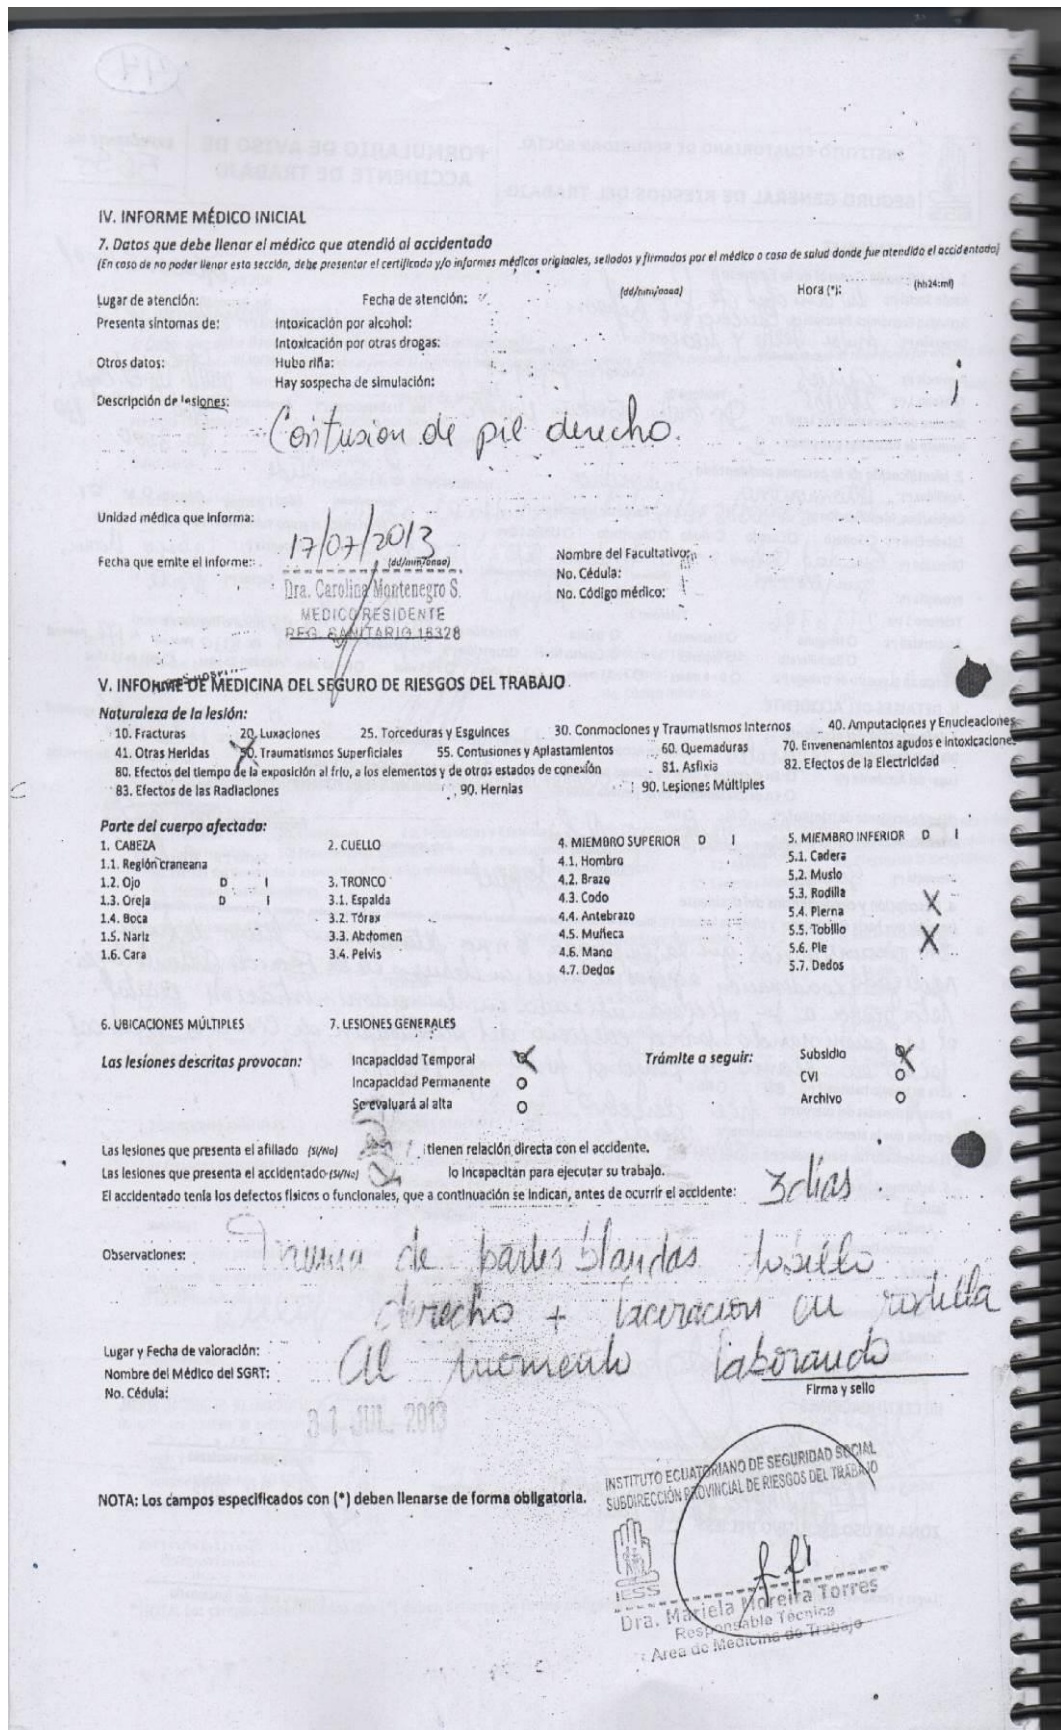 IV. INFORME MÉDICO INICIAL
7. Datos que debe llenar el médico que atendió al accidentado
(En caso de no poder llenar esta sección, debe presentar el certificado y/o informes médicos originales, sellados y firmados por el médico o casa de salud donde fue atendido el accidentado)
Lugar de atención: Fecha de atención: (dd/mm/aaaa) Hora (*): (hh24:mi)
Presenta síntomas de: Intoxicación por alcohol:
Intoxicación por otras drogas:
Otros datos: Hubo riña:
Hay sospecha de simulación:
Descripción de lesiones:
Contusion de pie derecho.
Unidad médica que informa:
17/07/2013
Fecha que emite el informe: (dd/mm/aaaa)
Nombre del Facultativo:
No. Cédula:
No. Código médico:
Dra. Carolina Montenegro S.
MEDICO RESIDENTE
REG. SANITARIO 16328
V. INFORME DE MEDICINA DEL SEGURO DE RIESGOS DEL TRABAJO
Naturaleza de la lesión:
10. Fracturas 20. Luxaciones 25. Torceduras y Esguinces 30. Conmociones y Traumatismos Internos 40. Amputaciones y Enucleaciones
41. Otras Heridas 50. Traumatismos Superficiales 55. Contusiones y Aplastamientos 60. Quemaduras 70. Envenenamientos agudos e intoxicaciones
80. Efectos del tiempo de la exposición al frío, a los elementos y de otros estados de conexión 81. Asfixia 82. Efectos de la Electricidad
83. Efectos de las Radiaciones 90. Hernias 90. Lesiones Múltiples
Parte del cuerpo afectada:
1. CABEZA 2. CUELLO 4. MIEMBRO SUPERIOR D I 5. MIEMBRO INFERIOR D I
1.1. Región craneana 4.1. Hombro 5.1. Cadera
1.2. Ojo D I 3. TRONCO 4.2. Brazo 5.2. Muslo
1.3. Oreja D I 3.1. Espalda 4.3. Codo 5.3. Rodilla
1.4. Boca 3.2. Tórax 4.4. Antebrazo 5.4. Pierna X
1.5. Nariz 3.3. Abdomen 4.5. Muñeca 5.5. Tobillo
1.6. Cara 3.4. Pelvis 4.6. Mano 5.6. Pie X
4.7. Dedos 5.7. Dedos
6. UBICACIONES MÚLTIPLES 7. LESIONES GENERALES
Las lesiones descritas provocan: Incapacidad Temporal X Trámite a seguir: Subsidio X
Incapacidad Permanente O CVI O
Se evaluará al alta O Archivo O
Las lesiones que presenta el afiliado (Si/No) tienen relación directa con el accidente.
Las lesiones que presenta el accidentado (Si/No) lo incapacitan para ejecutar su trabajo.
El accidentado tenía los defectos físicos o funcionales, que a continuación se indican, antes de ocurrir el accidente: 3 días
Observaciones: Trauma de partes blandas tobillo
derecho + laceracion en rodilla
Al momento laborando
Lugar y Fecha de valoración:
Nombre del Médico del SGRT:
No. Cédula:
Firma y sello
31 JUL. 2013
NOTA: Los campos especificados con (*) deben llenarse de forma obligatoria.
INSTITUTO ECUATORIANO DE SEGURIDAD SOCIAL
SUBDIRECCIÓN PROVINCIAL DE RIESGOS DEL TRABAJO
IESS
Dra. Mariela Moreira Torres
Responsable Técnica
Area de Medicina de Trabajo